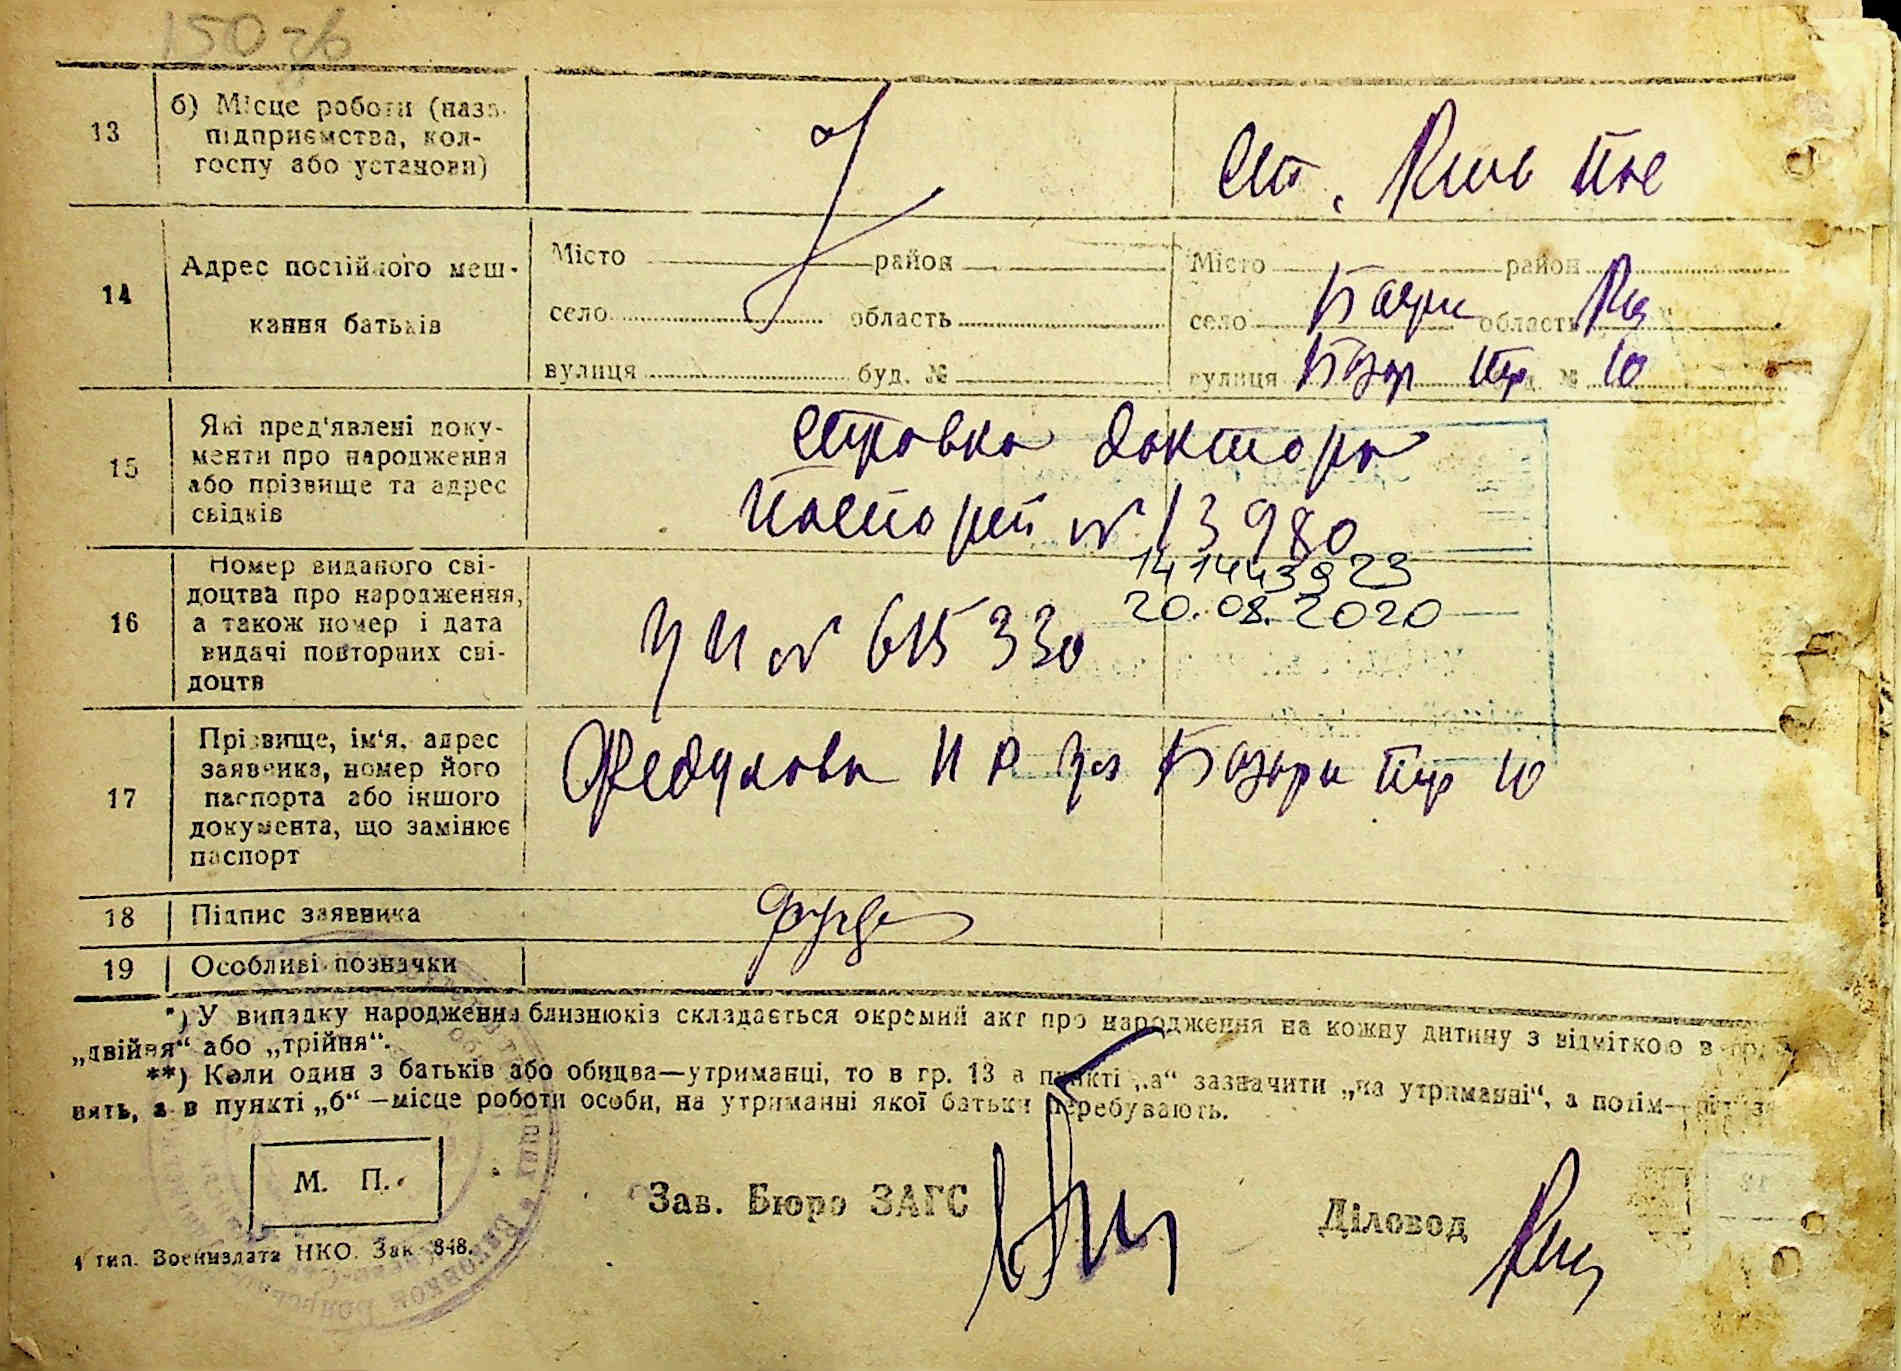 150 зв
13
б) Місце роботи (назв.
підприємства, кол-
госпу або установи)
ст. Київ Пас
14
Адрес постійного меш-
кання батьків
Місто район
село область
вулиця буд. №
Місто район
село область
вулиця Базар № 10
15
Які пред'явлені доку-
менти про народження
або прізвище та адрес
свідків
Справка доктора
Паспорт № 13980
16
Номер виданого сві-
доцтва про народження,
а також номер і дата
видачі повторних сві-
доцтв
№ 615330
1414439 29
20.08.2020
17
Прізвище, ім'я, адрес
заявника, номер його
паспорта або іншого
документа, що замінює
паспорт
Федулова 10
18
Підпис заявника
19
Особливі позначки
*) У випадку народження близнюків складається окремий акт про народження на кожну дитину з відміткою в
„двійня“ або „трійня“.
**) Коли один з батьків або обидва—утриманці, то в гр. 13 в пункті „а“ зазначити „на утриманні“, а потім—
вять, а в пункті „б“—місце роботи особи, на утриманні якої батьки перебувають.
М. П.
Зав. Бюро ЗАГС
Діловод
4 тип. Воениздата НКО. Зак. 848.